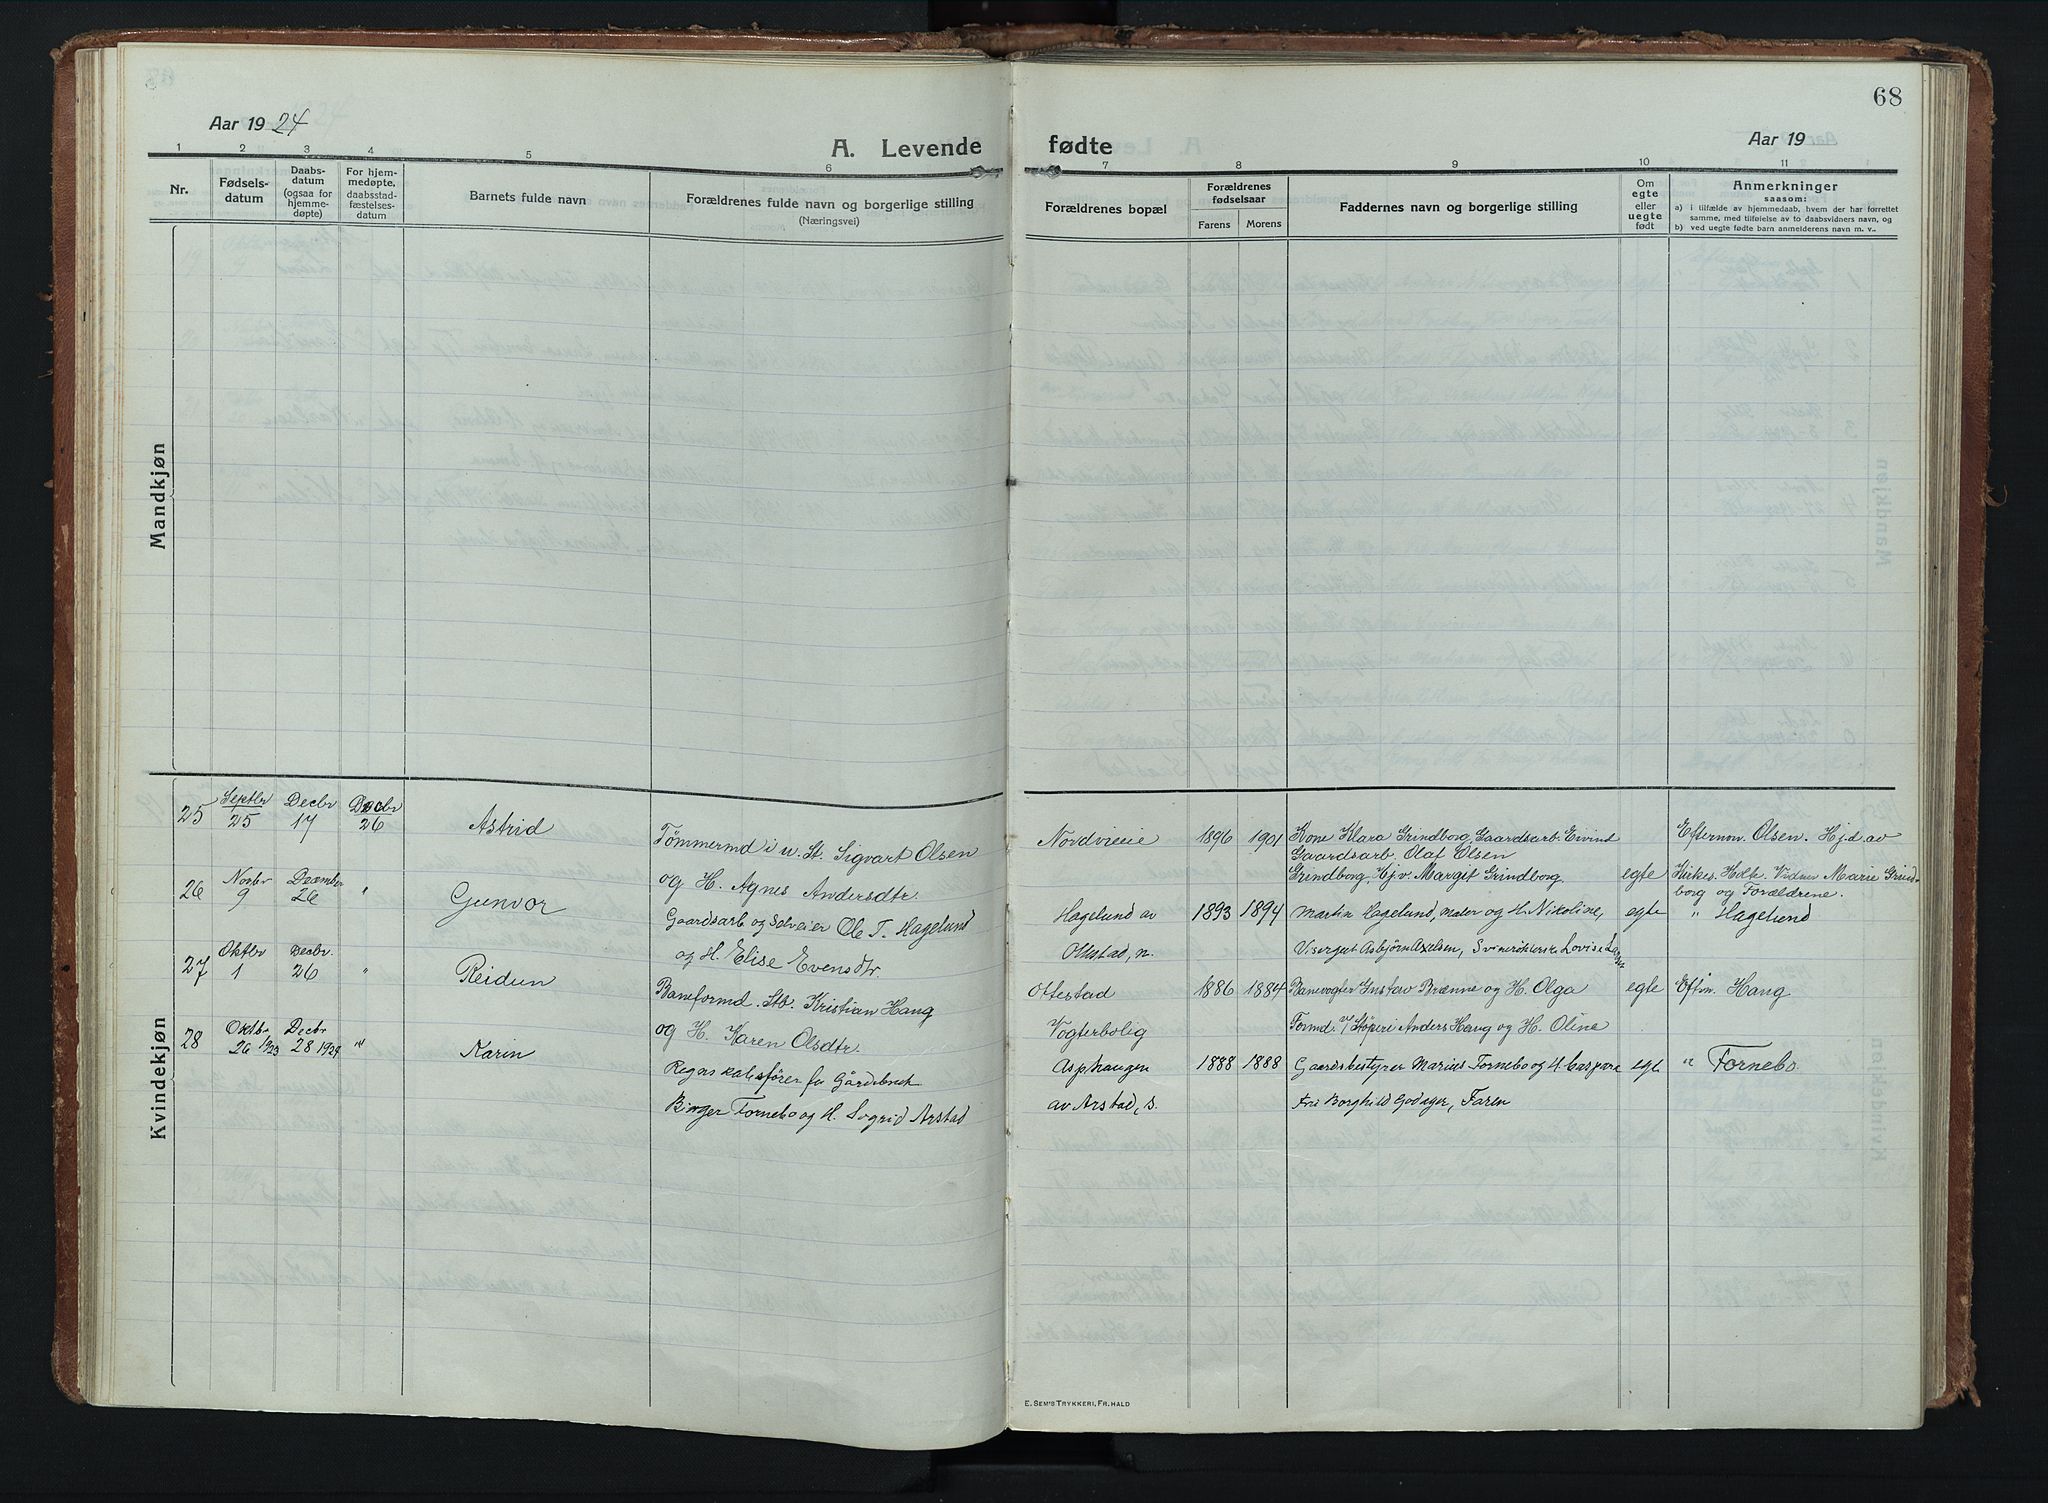 68
Aar 1924
A. Levende fødte
Aar 19
1 2 3 4 5 6 7 8 9 10 11
Nr.
Fødsels-
datum
Daabs-
datum
(ogsaa for
hjemme-
døpte)
For hjem-
medøpte,
daabsstad-
fæstelses-
datum
Barnets fulde navn
Forældrenes fulde navn og borgerlige stilling
(Næringsvei)
Forældrenes bopæl
Forældrenes
fødselsaar
Farens Morens
Faddernes navn og borgerlige stilling
Om
egte
eller
uegte
født
Anmerkninger
saasom:
a) i tilfælde av hjemmedaab, hvem der har forrettet
samme, med tilføielse av to daabsvidners navn, og
b) ved uegte fødte barn anmelderens navn m. v..
Mandkjøn
Kvindekjøn
25 Septbr 25 Decbr 17 Decbr 26 Astrid
Tømmermd i u. St. Sigvart Olsen
og H. Agnes Andersdtr.
Nordvieie 1896 1901
Kone Klara Grindborg, Gaardsarb. Eivind
Gaardsarb. Olaf Olsen
Grindborg, Hj.v. Margit Grindborg. egte
Efternvn. Olsen. Hj.d av
Kirkes. Holk. Vidner Marie Grind-
borg og Forældrene.
26 Novbr 9 December 26 " Gunvor
Gaardsarb og Selveier Ole T. Hagelund
og H. Elise Evensdtr.
Hagelund av 1893 1894
Ottestad, n.
Martin Hagelund, maler og H. Nikoline, egte " Hagelund
Visergut Asbjørn Axelsen, Lovise
27 Oktbr 1 Decbr. 26 " Reidun
Baneformd. Stb. Kristian Haug
og H. Karen Olsdtr.
Ottestad 1886 1884
Vogterbolig
Banevogter Gustav Brænne og H. Olga egte Eftnvn. Haug
Formd. v/ Støperi Anders Haug og H. Oline
28 Oktbr 26 1923 Decbr 28 1924 " Karin
Regnskabsfører for Gårdsbruk
Birger Fornebo og H. Sigrid Arstad
Asphaugen 1888 1888
av Arstad, s.
Gaardsbestyrer Marius Fornebo og H. Caspara egte " Fornebo.
Frk Borghild Godager, Faren
E. SEM'S TRYKKERI, FR.HALD